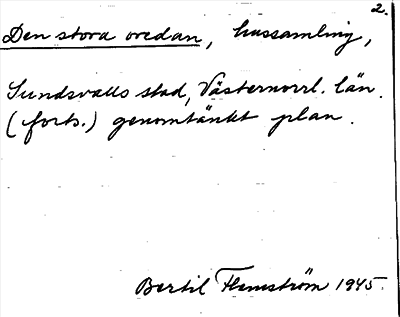 2.
Den stora oredan, hussamling,
Sundsvalls stad, Västernorrl. län.
(forts.) genomtänkt plan.
Bertil Flemström 1945.